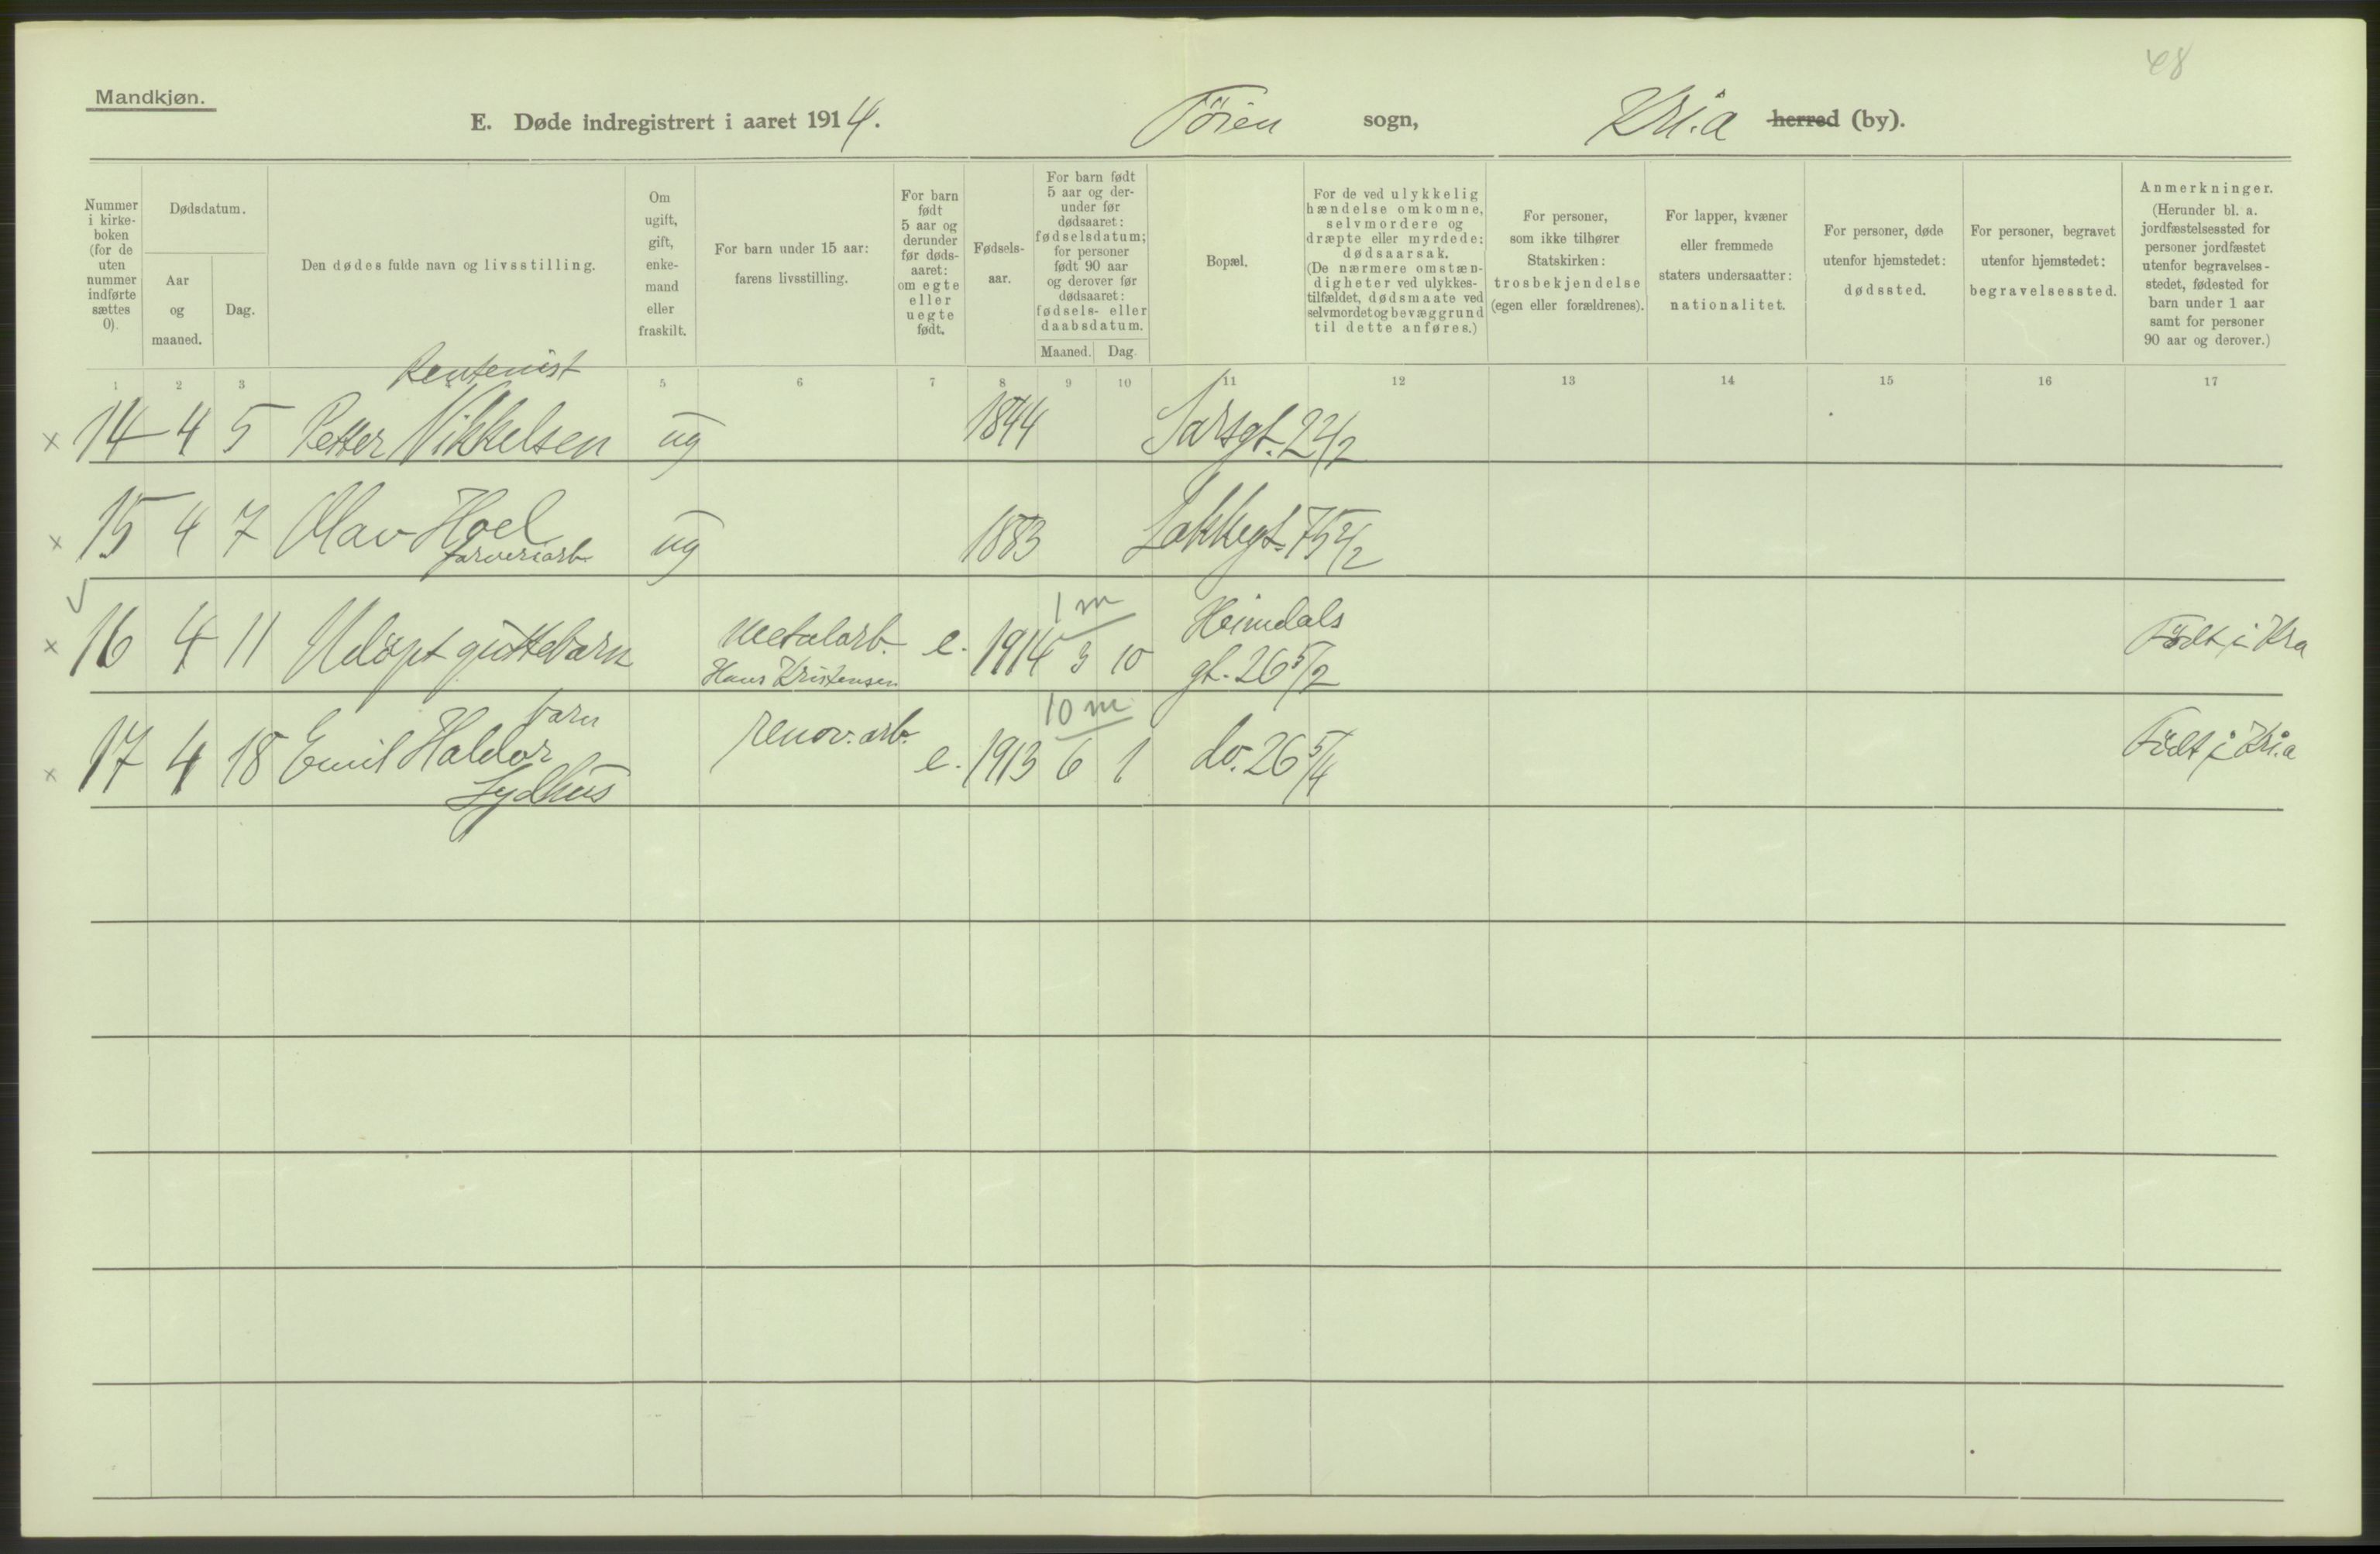 48
Mandkjøn.
E. Døde indregistrert i aaret 1914. Töien sogn, Kri.a herred (by).
Nummer i kirke-boken (for de uten nummer indførte sættes 0).
Dødsdatum.
Aar og maaned.
Dag.
Den dødes fulde navn og livsstilling.
Om ugift, gift, enke-mand eller fraskilt.
For barn under 15 aar: farens livsstilling.
For barn født 5 aar og derunder før døds-aaret: om egte eller uegte født.
Fødsels-aar.
For barn født 5 aar og der-under før dødsaaret: fødselsdatum; for personer født 90 aar og derover før dødsaaret: fødsels- eller daabsdatum.
Maaned. Dag.
Bopæl.
For de ved ulykkelig hændelse omkomne, selvmordere og dræpte eller myrdede: dødsaarsak. (De nærmere omstæn-digheter ved ulykkes-tilfældet, dødsmaate ved selvmordet og bevæggrund til dette anføres.)
For personer, som ikke tilhører Statskirken: trosbekjendelse (egen eller forældrenes).
For lapper, kvæner eller fremmede staters undersaatter: nationalitet.
For personer, døde utenfor hjemstedet: dødssted.
For personer, begravet utenfor hjemstedet: begravelsessted.
Anmerkninger. (Herunder bl. a. jordfæstelsessted for personer jordfæstet utenfor begravelses-stedet, fødested for barn under 1 aar samt for personer 90 aar og derover.)
1 2 3 5 6 7 8 9 10 11 12 13 14 15 16 17
Rentenist
x 14 4 5 Petter Nikkelsen ug 1844 Sarsgt. 22/2
x 15 4 7 Olav Hoel ug 1883 Lakkegt. 75 2/2
farveriarb
1 m
x 16 4 11 Udöpt guttebarn metalarb. e. 1914 3 10 Heimdals Födt i Kra
Hans Kristensen gt. 26 5/2
barn 10 m
x 17 4 18 Emil Haldor renov. arb. e. 1913 6 1 do. 26 5/4 Födt i Kri.a
Lydhus